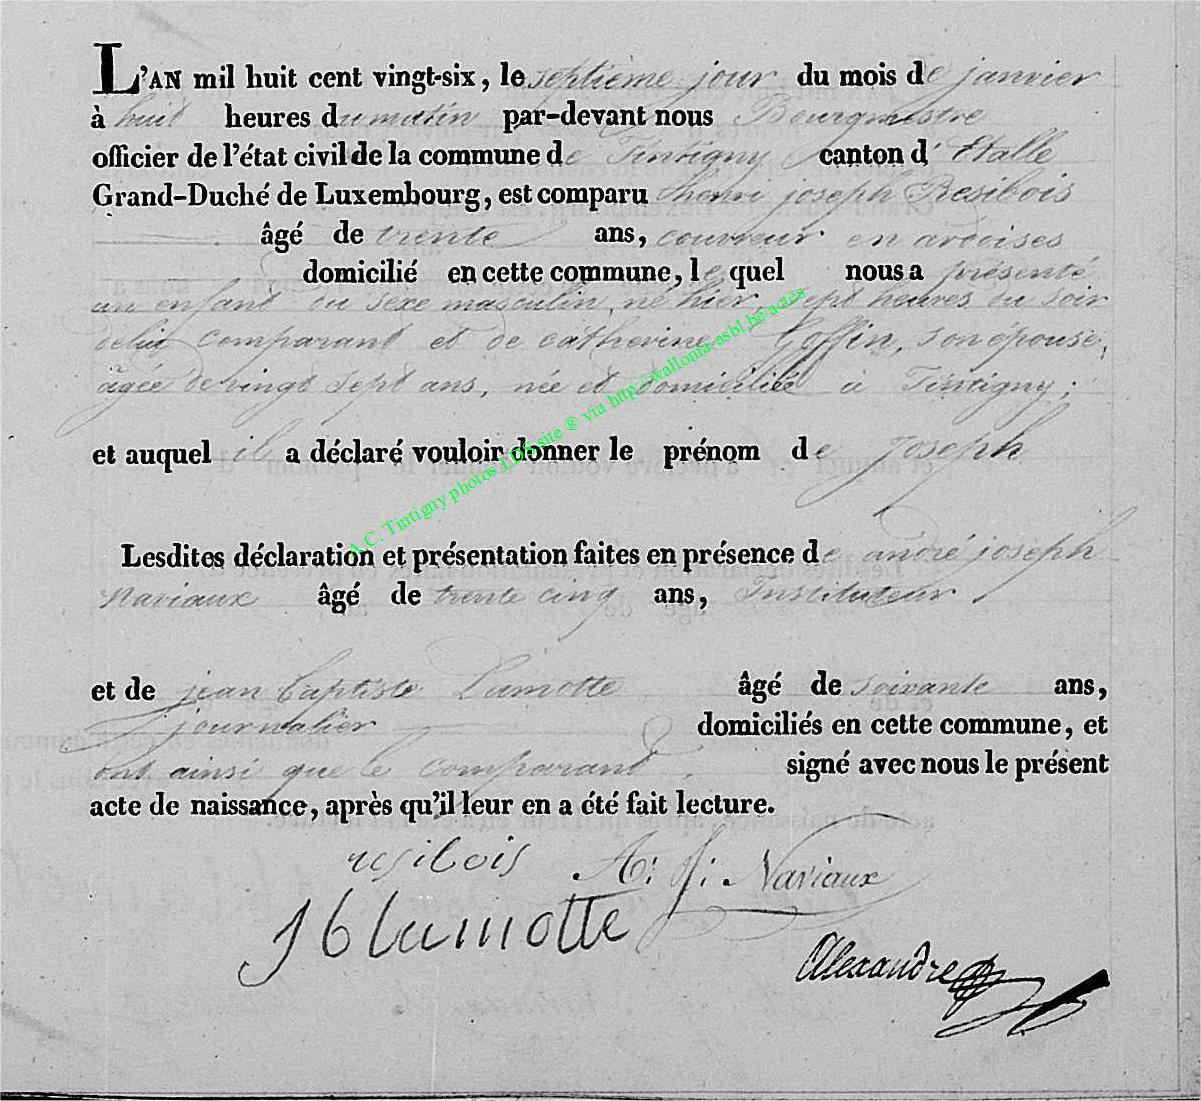 L'AN mil huit cent vingt-six, le septième jour du mois de janvier
à huit heures du matin par-devant nous Bourgmestre
officier de l'état civil de la commune de Tintigny canton d'Etalle
Grand-Duché de Luxembourg, est comparu henri joseph Resibois
âgé de trente ans, couvreur en ardoises
domicilié en cette commune, lequel nous a présenté
un enfant du sexe masculin, né hier, sept heures du soir
de lui comparant et de catherine Goffin, son épouse,
âgée de vingt sept ans, née et domiciliée à Tintigny;
et auquel il a déclaré vouloir donner le prénom de joseph
A.C. Tintigny photos LDS site ® via http://wallonia-asbl.be/actes
Lesdites déclaration et présentation faites en présence de andré joseph
Naviaux âgé de trente cinq ans, Instituteur
et de jean baptiste Lamotte âgé de soixante ans,
journalier domiciliés en cette commune, et
ont ainsi que le comparant, signé avec nous le présent
acte de naissance, après qu'il leur en a été fait lecture.
resibois A: J: Naviaux
J b lamotte
Alexandre